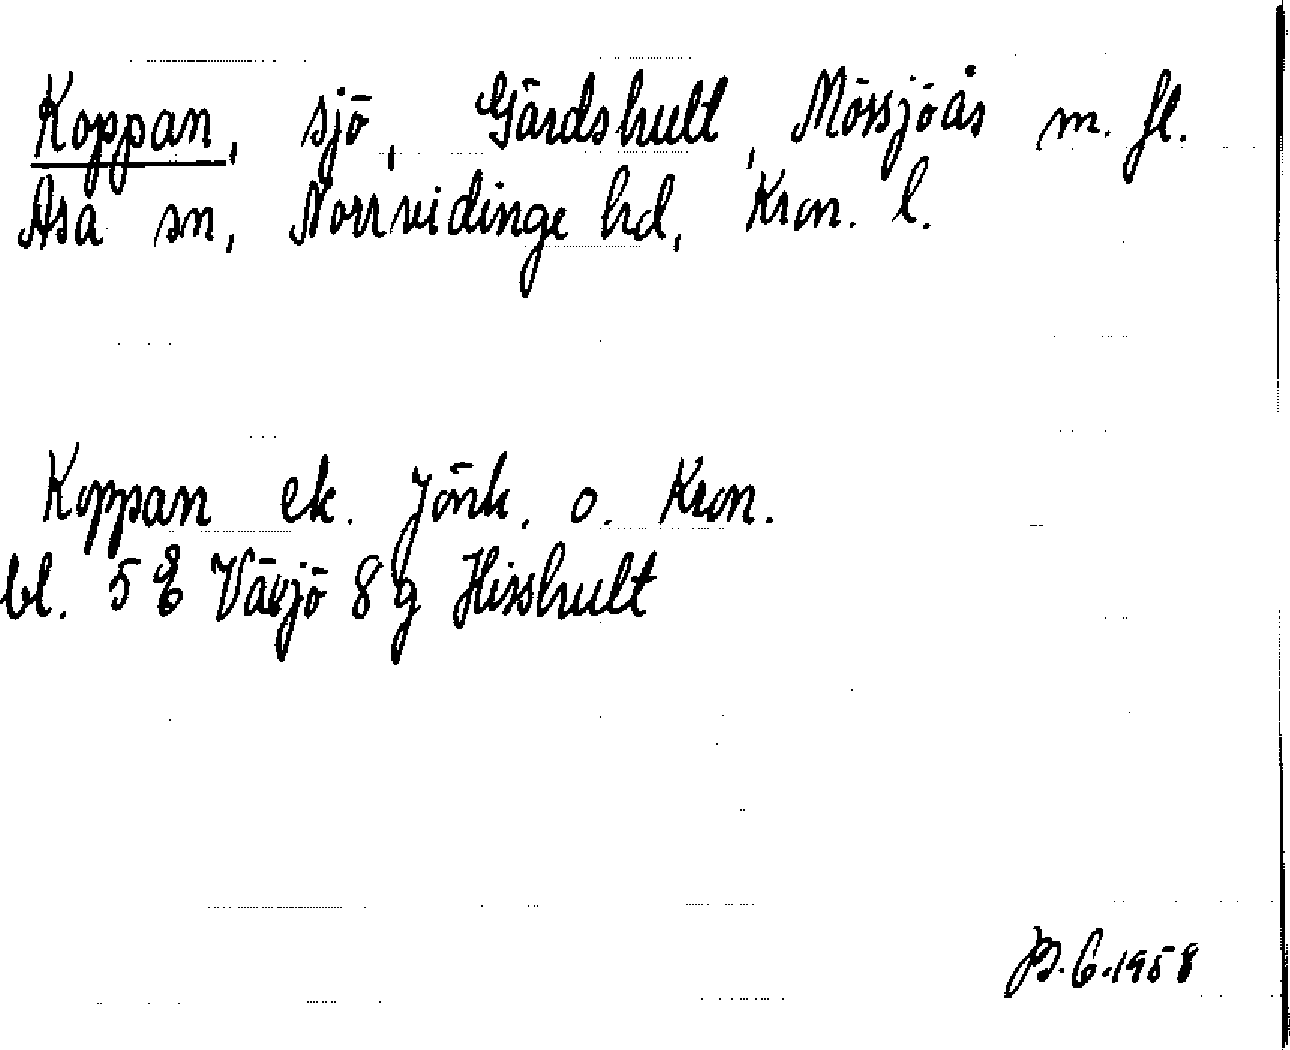 Koppan, sjö, Gårdshult, Mössjöås m. fl.
Asa sn, Norrvidinge hd, Kron. l.
Koppan ek. Jönk. o. Kron.
bl. 5 E Växjö 8 g Hisshult
B. C. 1958